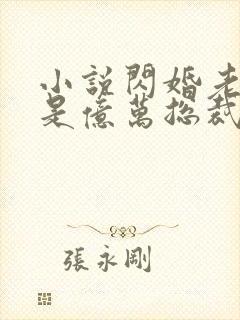 小説閃婚老
是億萬總裁
張永剛